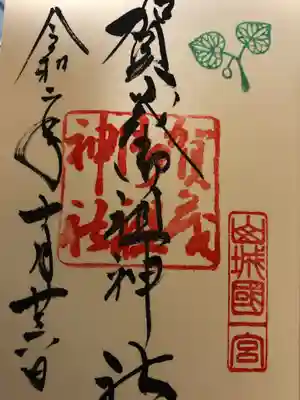 山城國一宮
賀茂御祖神社
賀茂
御祖
神社
令和二年十月廿六日